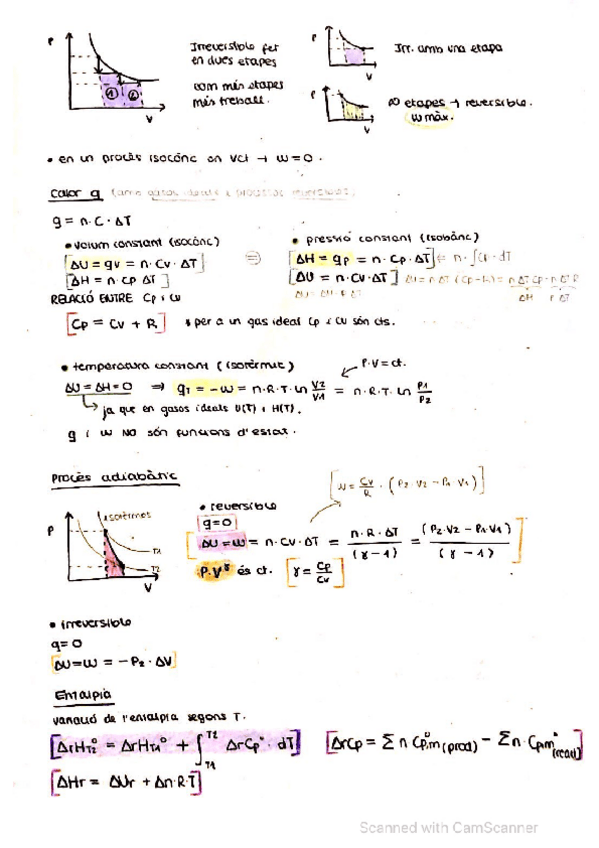 P
V
① ②
Irreversible fet
en dues etapes
com més etapes
més treball.
P
V
Irr. amb una etapa
P
V
∞ etapes → reversible.
W màx.
• en un procés isocòric on V ct → W = 0.
Calor q
q = n · C · ΔT
• volum constant (isocòric)
[ΔU = qv = n · Cv · ΔT]
[ΔH = n · Cp ΔT]
RELACIÓ ENTRE Cp i Cv
[Cp = Cv + R] * per a un gas ideal Cp i CV són cts.
• pressió constant (isobàric)
[ΔH = qp = n · Cp · ΔT] ← n · ∫Cp · dT
[ΔU = n · Cv · ΔT] ΔU = n ΔT (Cp - R) = n ΔT Cp - n ΔT R
ΔH
• temperatura constant (isotèrmic)
P·V = ct.
ΔU = ΔH = 0 ⇒ qT = -W = n · R · T · Ln V2/V1 = n · R · T · Ln P1/P2
ja que en gasos ideals U(T) i H(T).
q i W NO són funcions d'estat.
Procés adiabàtic
[W = Cv/R · (P2 · V2 - P1 · V1)]
P
V
isotèrmes
T1
T2
• reversible
q = 0
[ΔU = W = n · CV · ΔT = n · R · ΔT / (γ - 1) = (P2 · V2 - P1 · V1) / (γ - 1)]
P·V^γ és ct. [γ = Cp/Cv]
• irreversible
q = 0
[ΔU = W = - P2 · ΔV]
Entalpia
variació de l'entalpia segons T.
[ΔrH°T2 = ΔrH°T1 + ∫T1 T2 ΔrCp° · dT] [ΔrCp = Σ n Cp°,m (prod) - Σ n · Cp,m° (react)]
[ΔHr = ΔUr + Δn · R · T]
Scanned with CamScanner